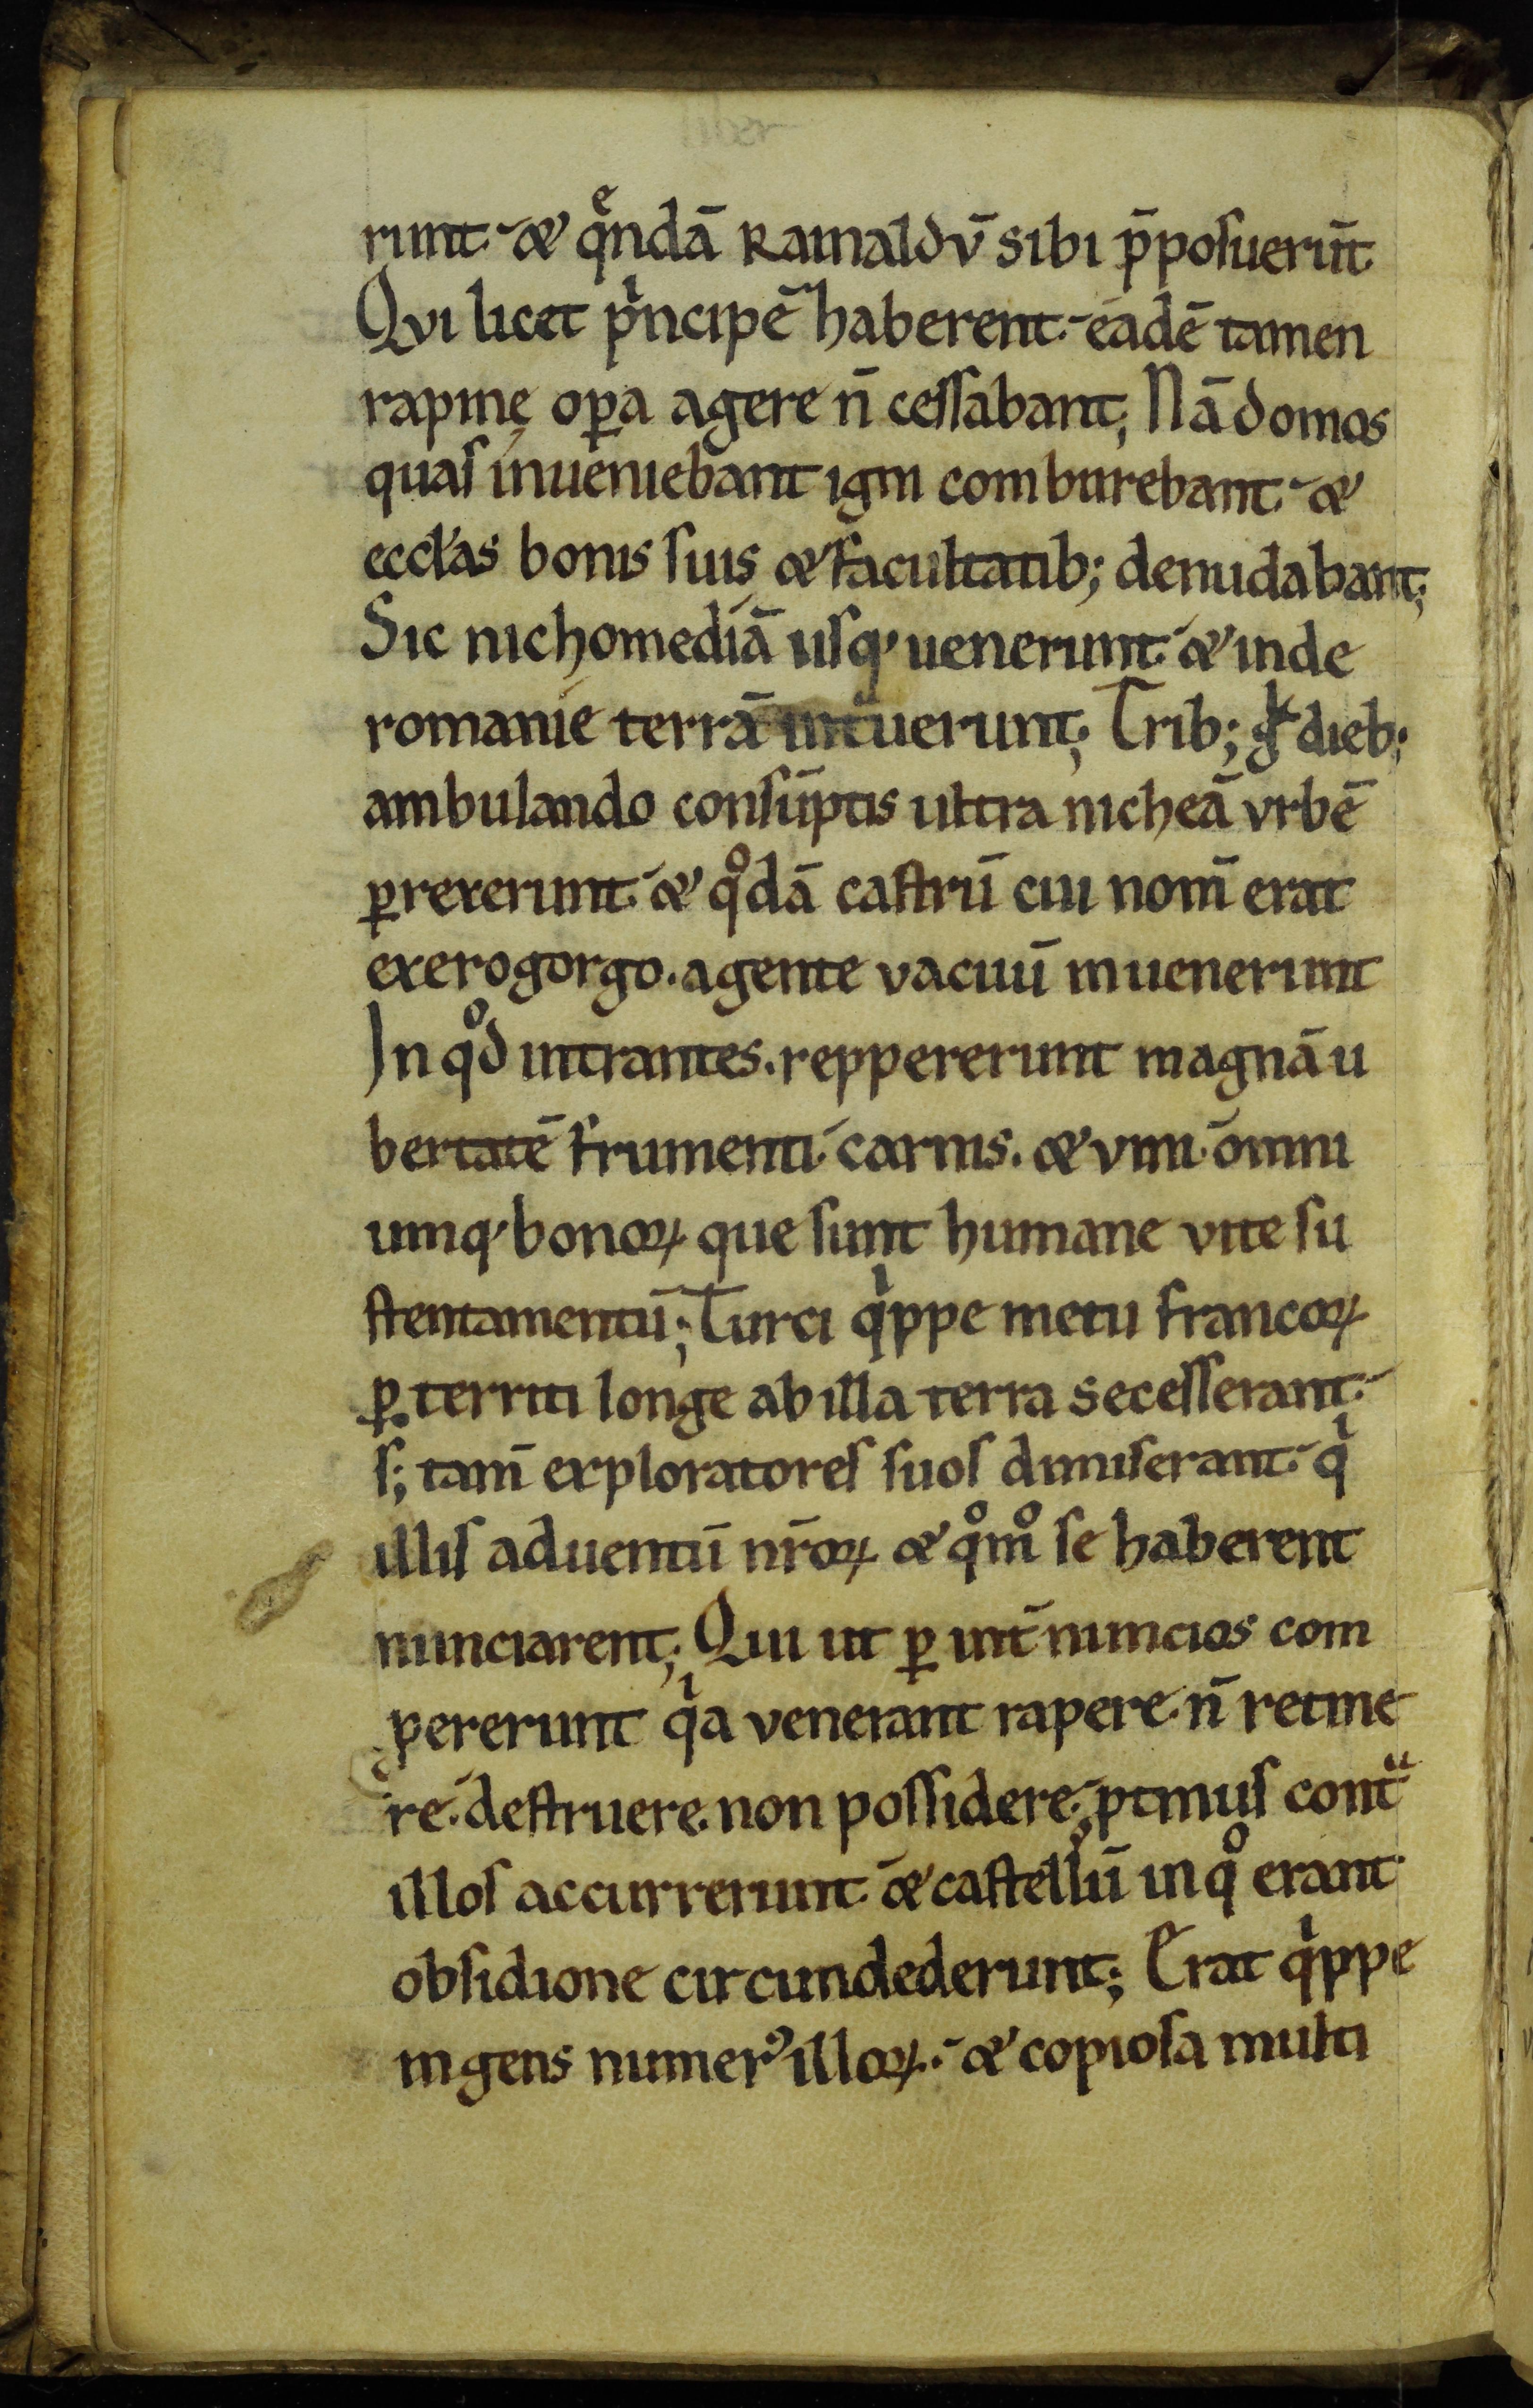 runt. & qͤndā Rainaldv̄ sibi p̄posuerūt.
Qvi licet pⁱncipē haberent. eadē tamen
rapinę oꝑa agere n̄ cessabant; Nā domos
quas inueniebant igni comburebant. &
eccl̓as bonis suis & facultatib; denudabant;
Sic nichomediā usq; uenerunt. & inde
romanie terrā intᵃuerunt; Trib; g̾ dieb;
ambulando consūptis ultra nicheā vrbē
ꝑrexerunt. & qͦdā castrū cui nom̄ erat
exerogorgo. agente vacuū inuenerunt
In qͦd intrantes. reppererunt magnā u
bertatē frumenti. carnis. & vini. omni
umq; bonoꝝ que sunt humane vite su
stentamentū; Turci qⁱppe metu francoꝝ
ꝑterriti longe ab illa terra secesserant.
s; tam̄ exploratores suos dimiserant. qⁱ
illis aduentū nr̄oꝝ & qͦmͦ se haberent
nunciarent; Qui ut ꝑ int̄nuncios com
pererunt qⁱa venerant rapere. n̄ retine
re. destruere. non possidere. ꝓtinus contᵃ
illos accurrerunt. & castellū in qͦ erant.
obsidione circundederunt; Erat qⁱppe
ingens numerꝰ illoꝝ. & copiosa multi